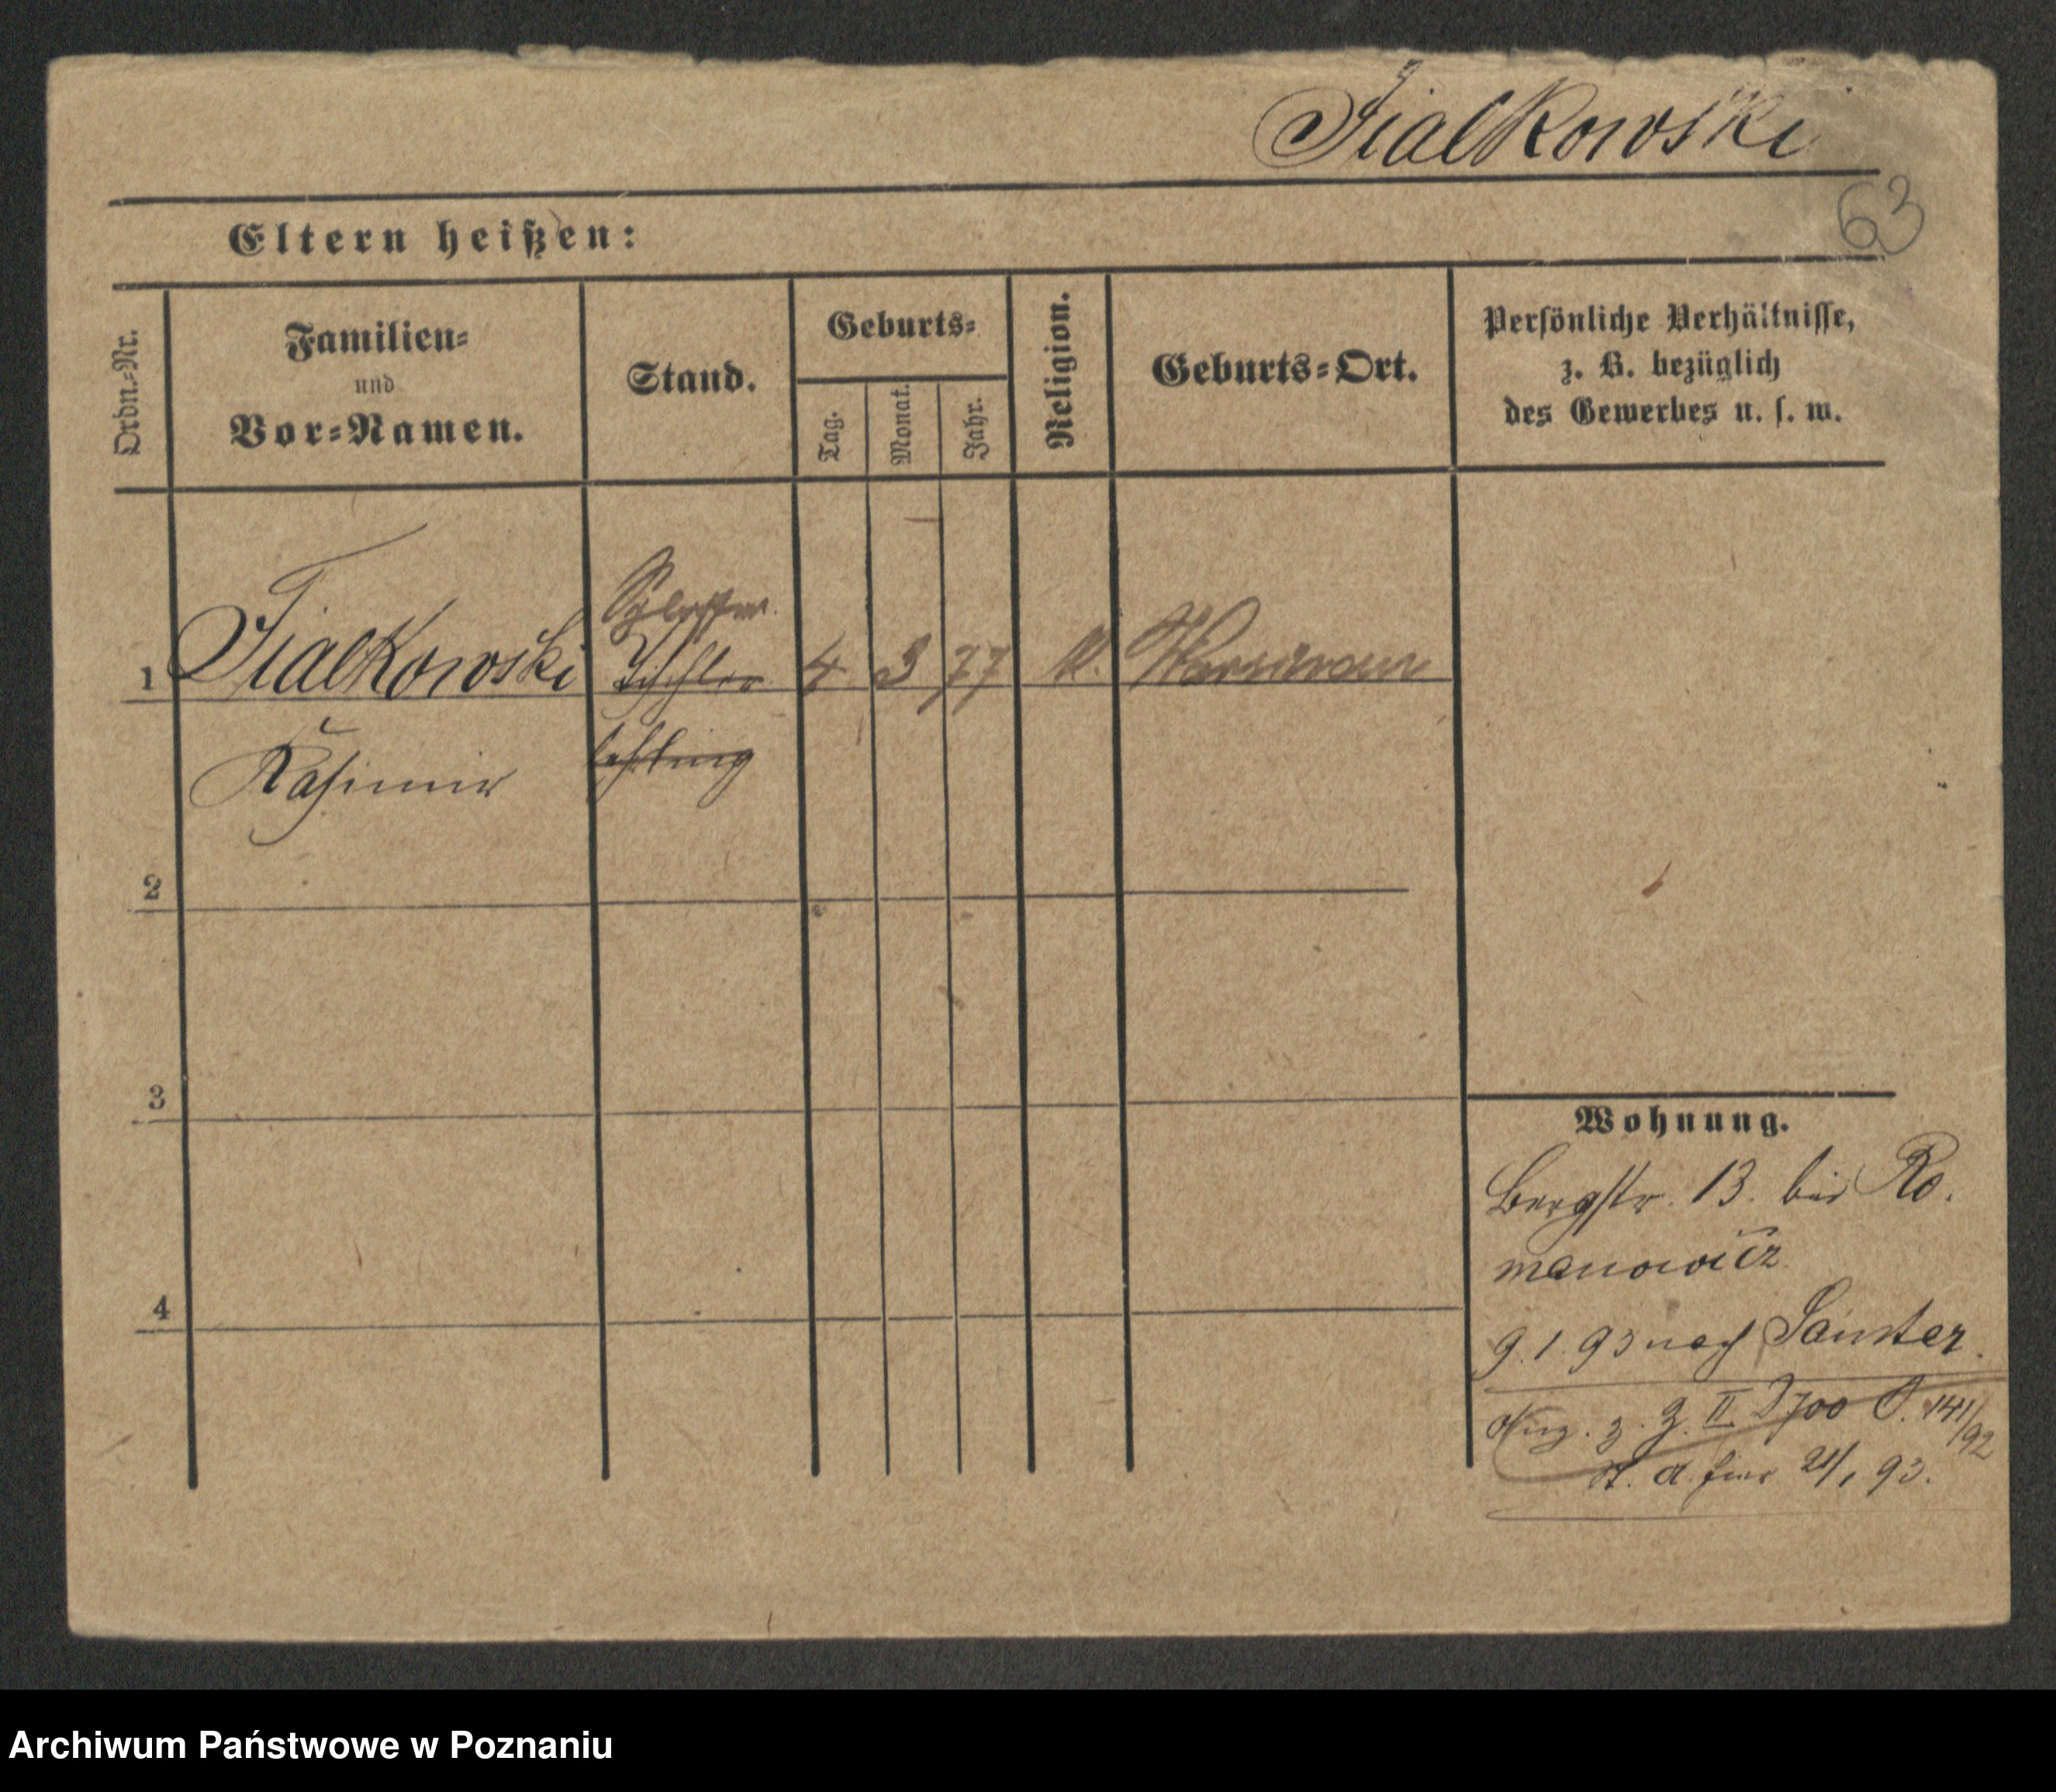 Fialkowski
63
Eltern heißen:
Ordn.-Nr.
Familien-
und
Vor-Namen.
Stand.
Geburts-
Tag.
Monat.
Jahr.
Religion.
Geburts-Ort.
Persönliche Verhältnisse,
z. B. bezüglich
des Gewerbes u. s. w.
Schlosser
1 Fialkowski Tischler 4 3 77 k. Warschau
Kasimir lehrling
2
3
4
Wohnung.
Bergstr. 13. bei Ro.
manowicz
9.1.93 nach Samter.
z. J. II 3700 141/92
St. A. hier 21/1 93.
Archiwum Państwowe w Poznaniu